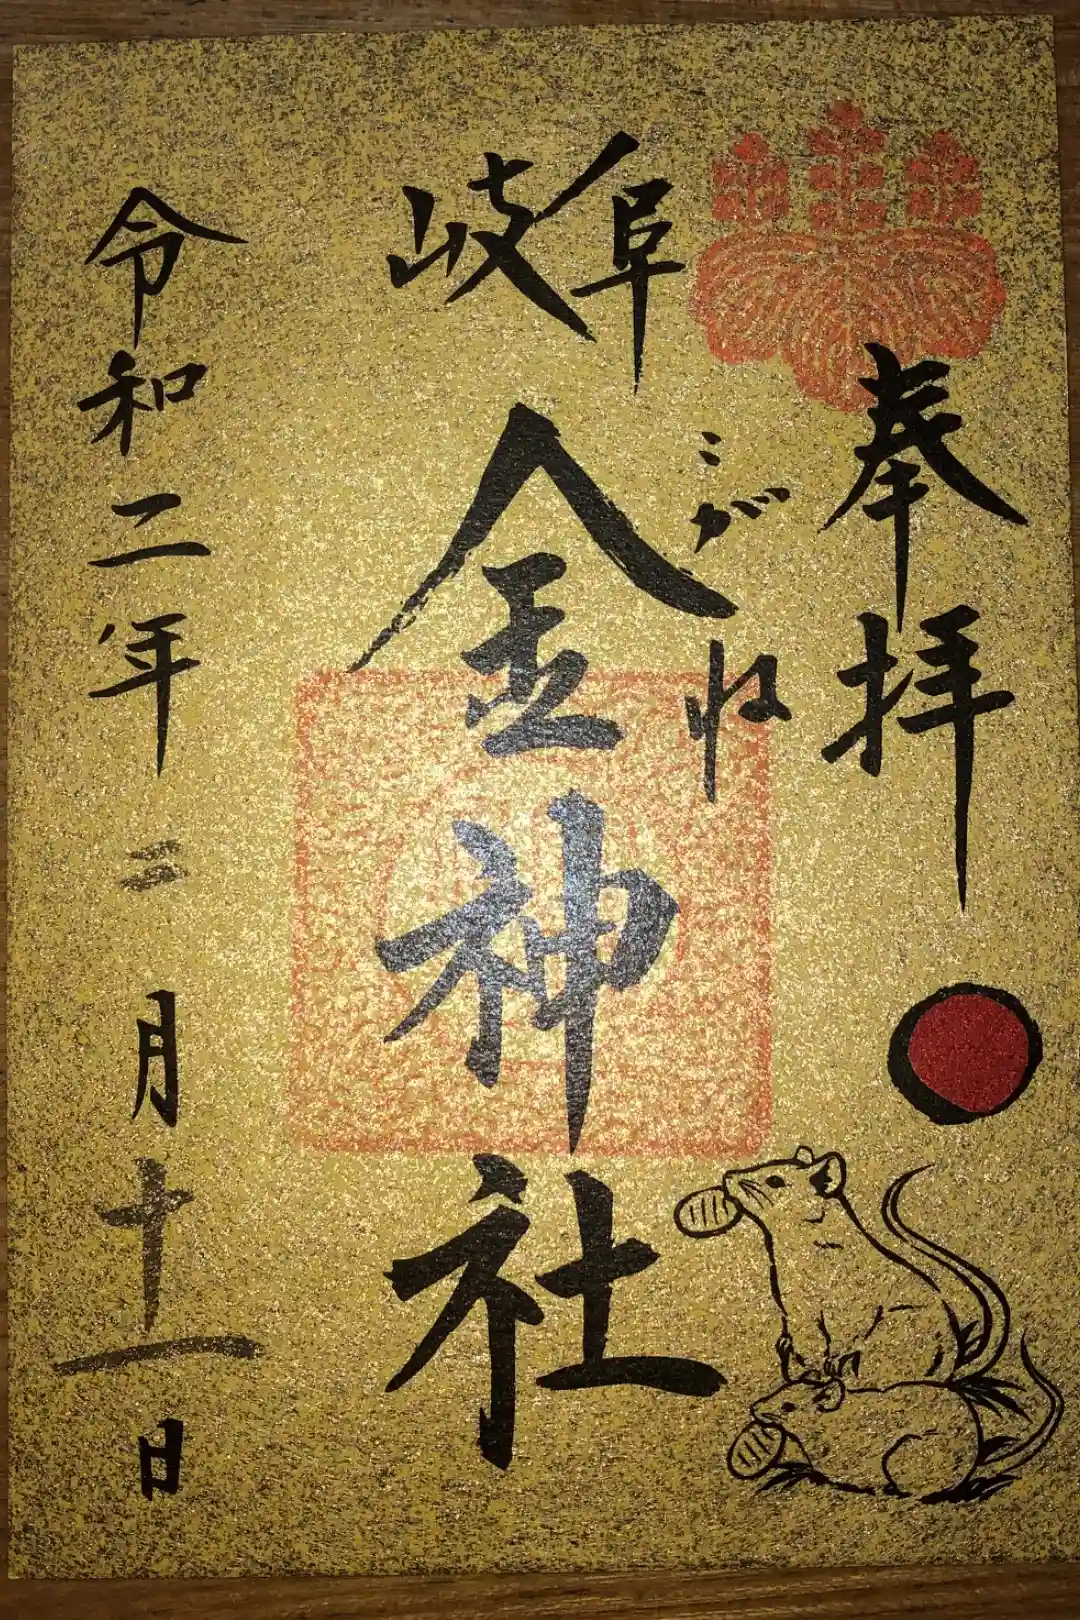 奉拝
岐阜
こがね
金神社
令和二年二月十一日